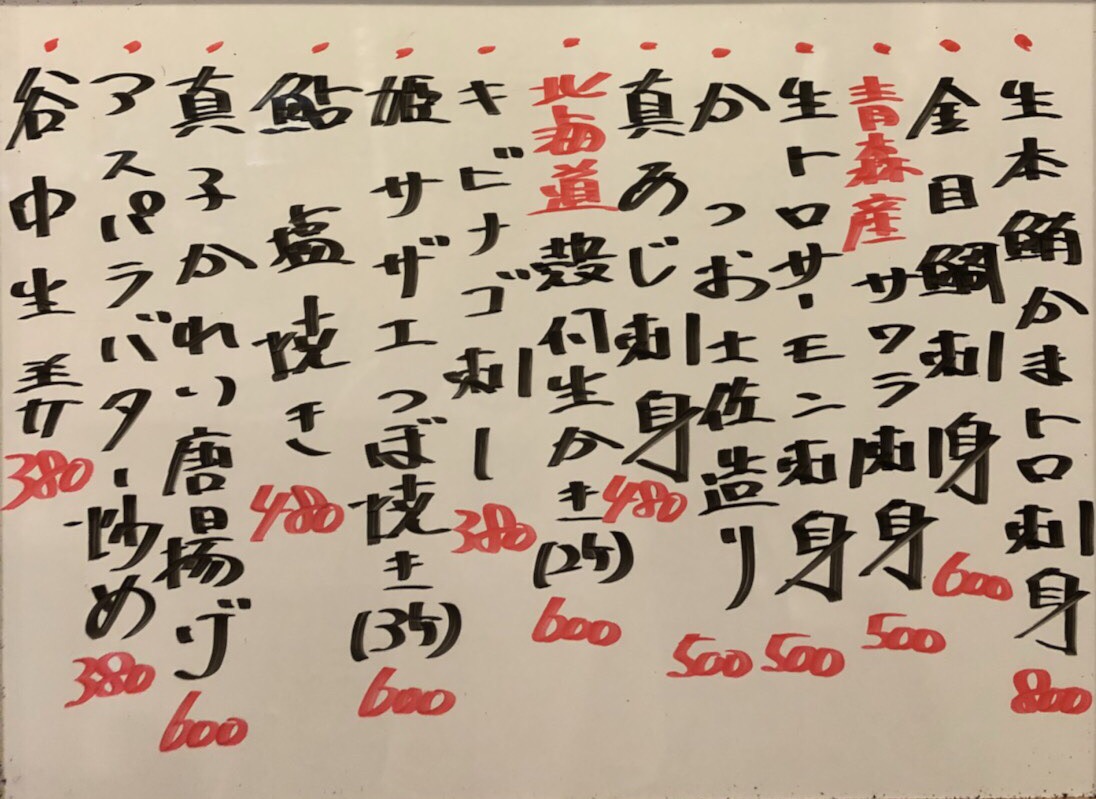 生本鮪かまトロ刺身 800
金目鯛刺身 600
青森産サワラ刺身 500
生トロサーモン刺身 500
かつお土佐造り 500
真あじ刺身 480
北海道殻付生かき(2ケ) 600
キビナゴ刺し 380
姫サザエつぼ焼き(3ケ) 600
鮎塩焼き 480
真子かれい唐揚げ 600
アスパラバター炒め 380
谷中生姜 380